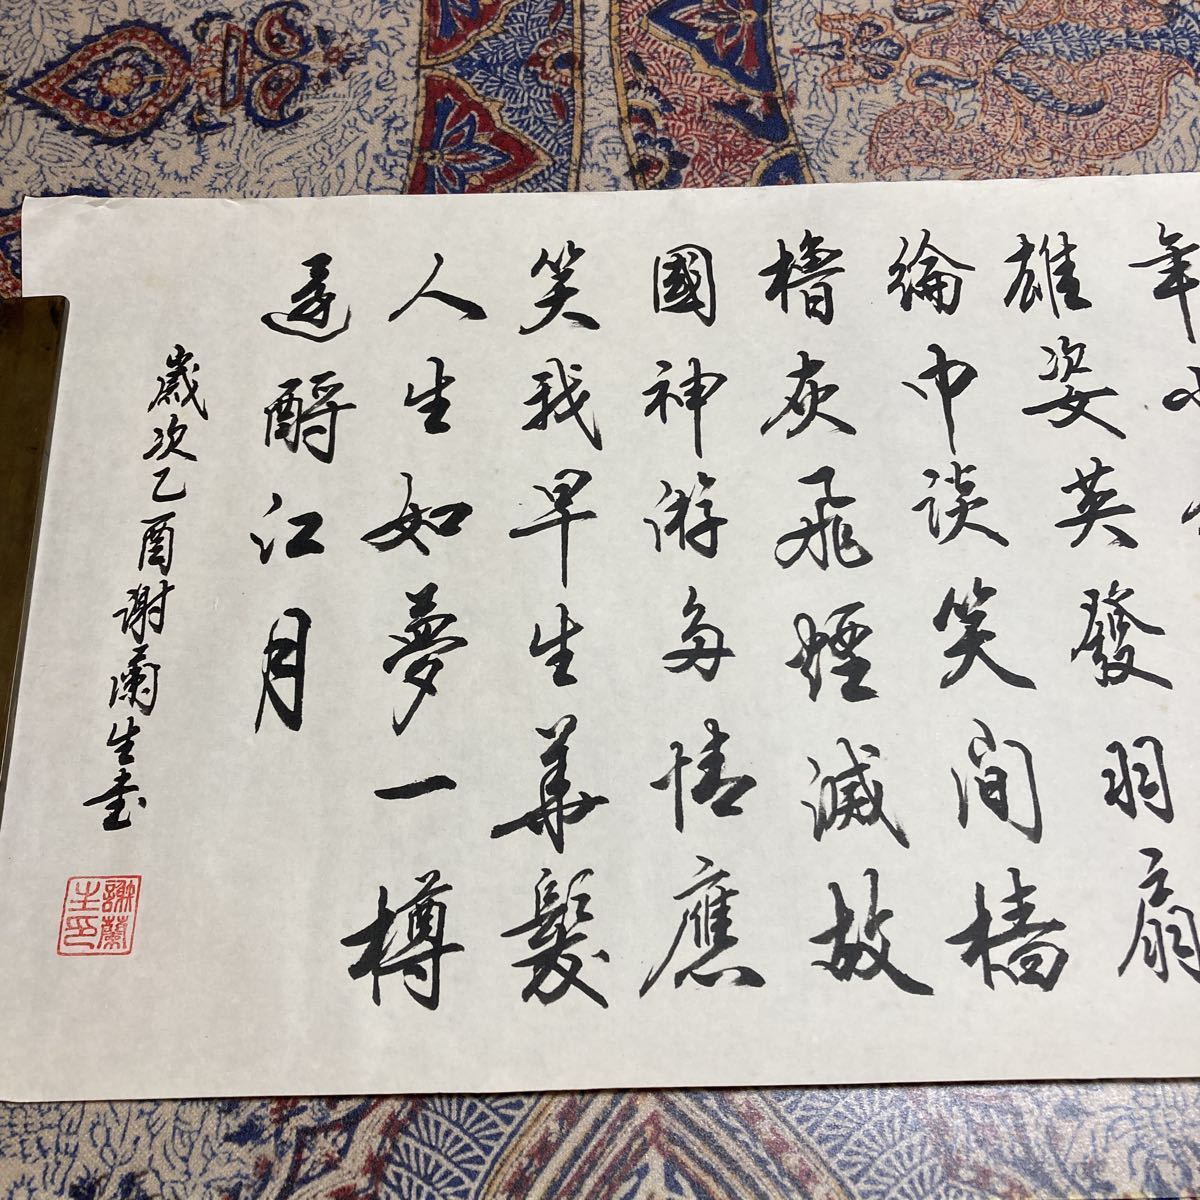 年
雄姿英發羽扇
綸巾談笑間檣
櫓灰飛煙滅故
國神游多情應
笑我早生華髮
人生如夢一樽
還酹江月
歲次乙酉謝蘭生書
謝蘭生印